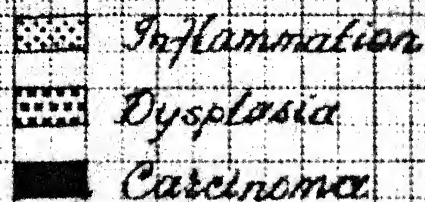 Inflammation
Dysplasia
Carcinoma